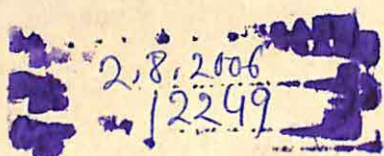 2,8,2006
12249